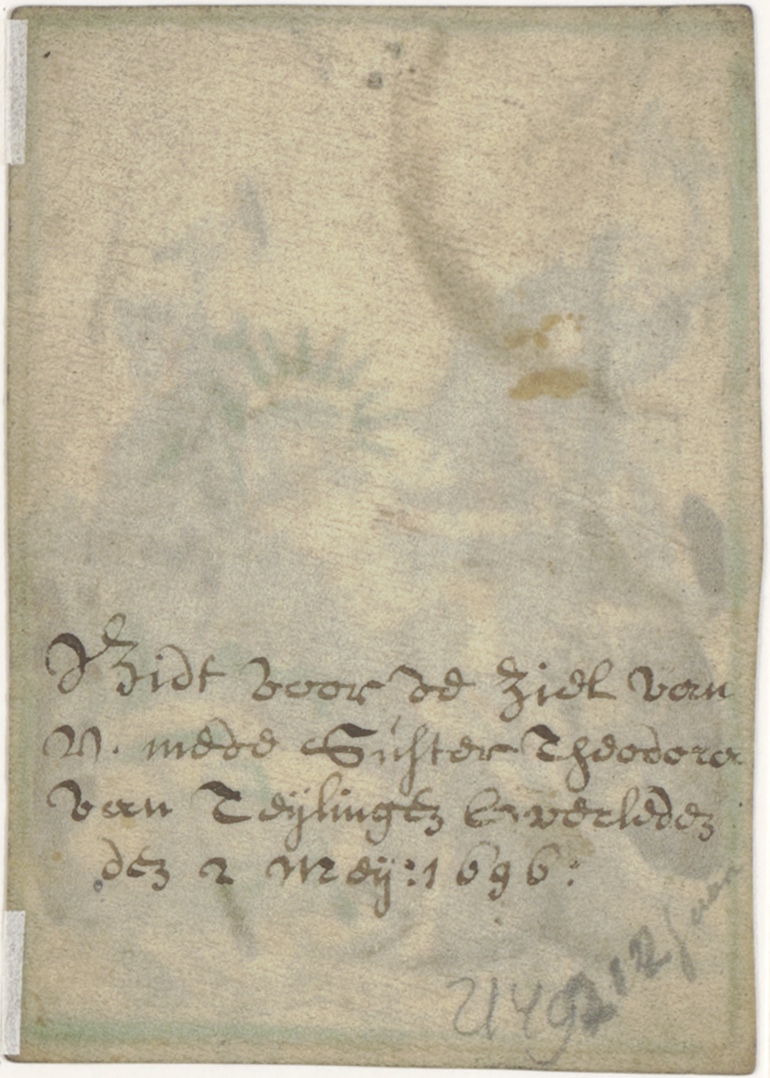 Bidt voor de Ziel van
V. mede Suster Theodora
van Teÿlingen overleden
den 2 Meÿ: 1696: